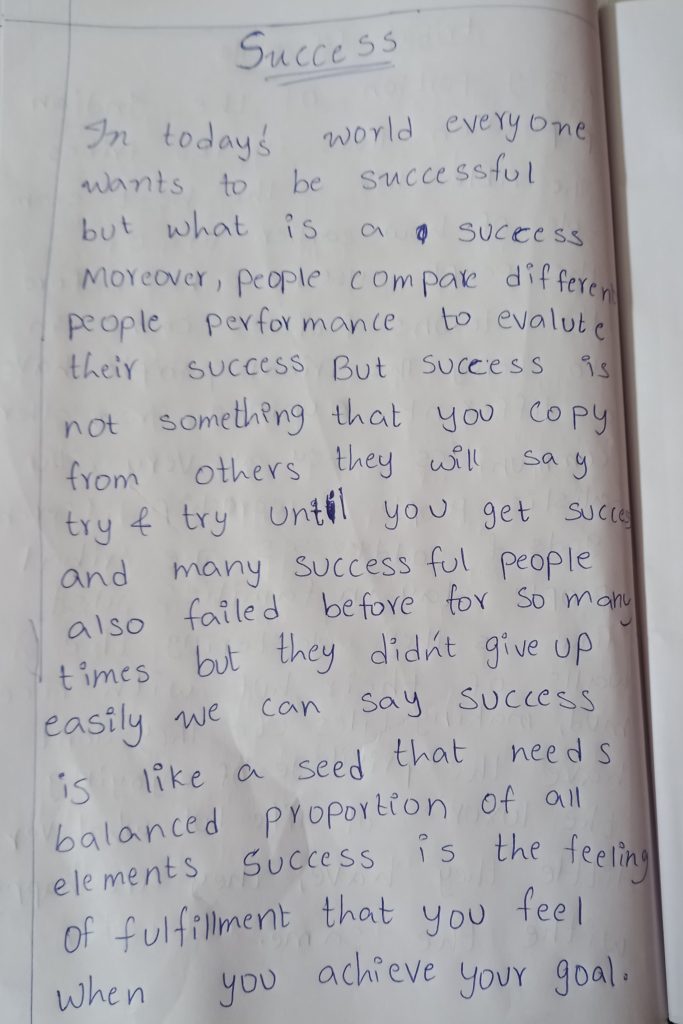 Success
In today's world everyone
wants to be successful
but what is a success
Moreover, people compare different
people performance to evalute
their success But success is
not something that you copy
from others they will say
try & try until you get success
and many successful people
also failed before for so many
times but they didn't give up
easily we can say success
is like a seed that needs
balanced proportion of all
elements Success is the feeling
of fulfillment that you feel
when you achieve your goal.